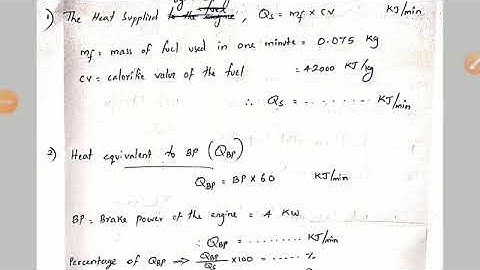 by fuel
1) The Heat Supplied to the engine, Qs = mf × CV KJ/min
mf = mass of fuel used in one minute = 0.075 Kg
CV = calorific value of the fuel = 42000 KJ/kg
∴ Qs = ......... KJ/min
2) Heat equivalent to BP (QBP)
QBP = BP × 60 KJ/min
BP = Brake power of the engine = 4 KW
∴ QBP = ......... KJ/min
Percentage of QBP → QBP/Qs × 100 = ...... %